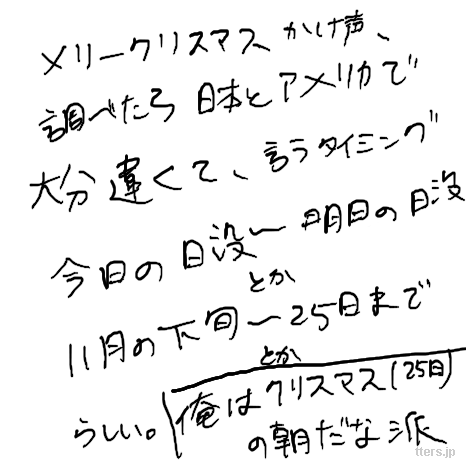 メリークリスマス かけ声、
調べたら 日本とアメリカで
大分違くて、言うタイミング
今日の日没〜明日の日没
とか
11月の下旬〜25日まで
とか
らしい。俺はクリスマス(25日)
の朝だな派
tters.jp